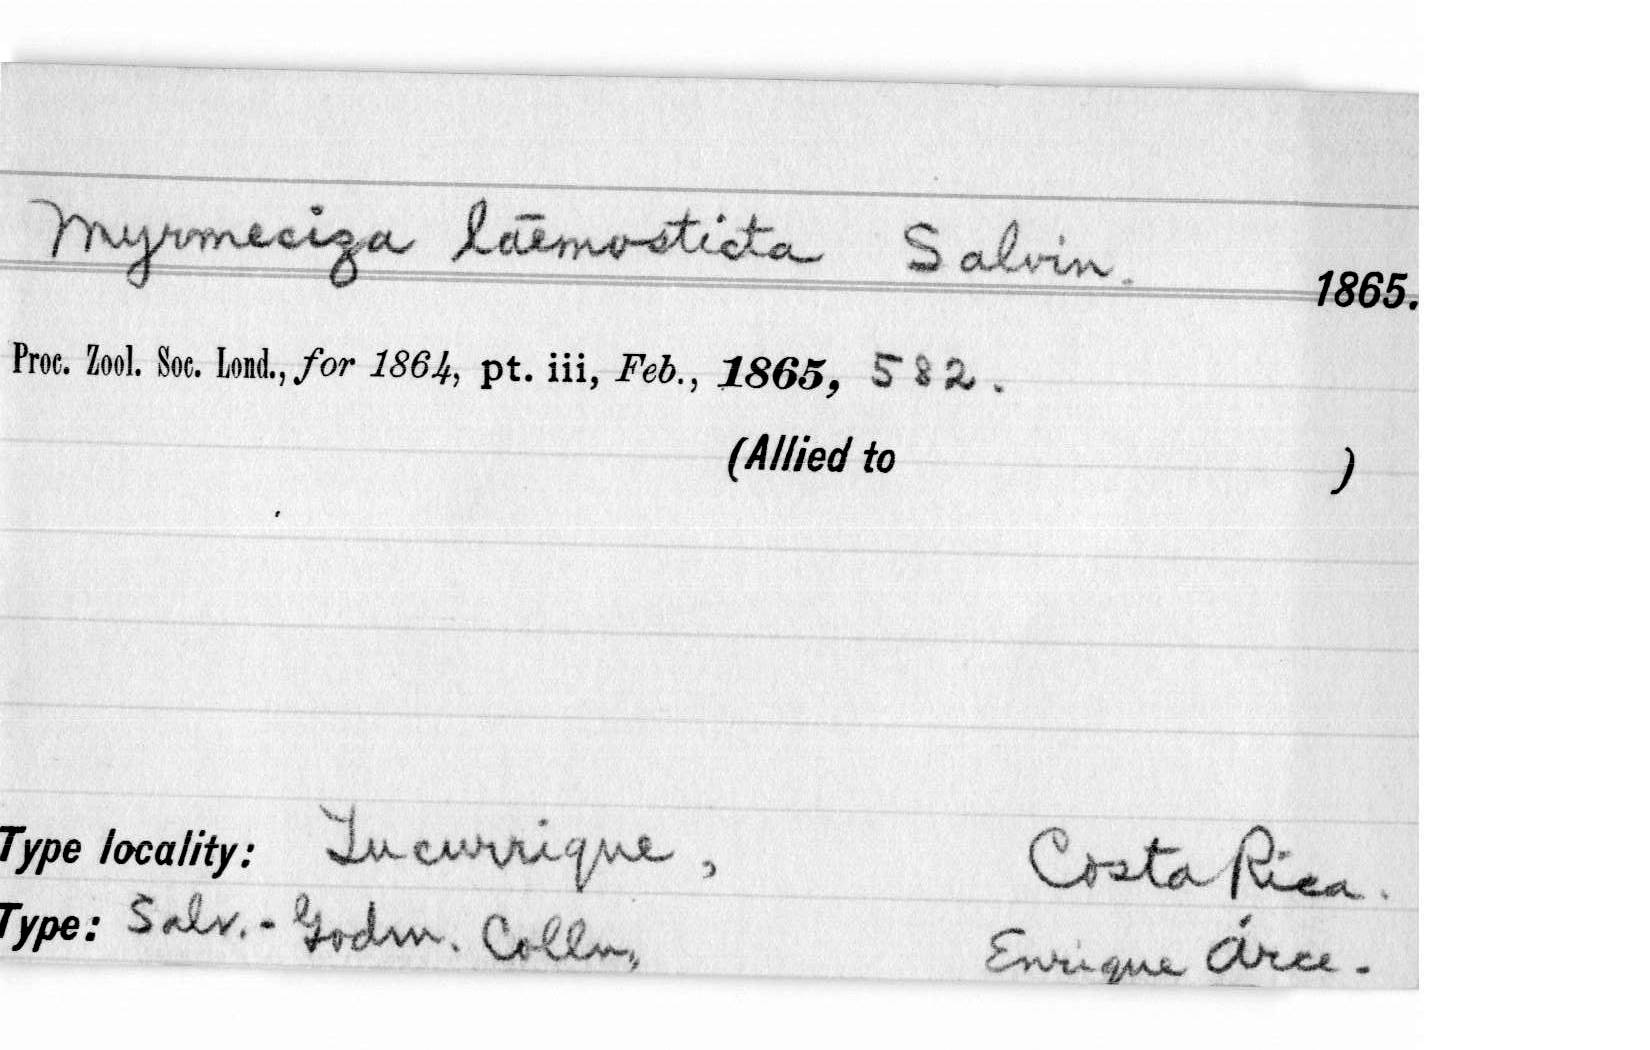 Myrmeciza laemosticta Salvin.
1865.
Proc. Zool. Soc. Lond., for 1864, pt. iii, Feb., 1865, 582.
(Allied to )
Type locality: Tucurrique, Costa Rica.
Type: Salv.-Godm. Colln., Enrique Árce.